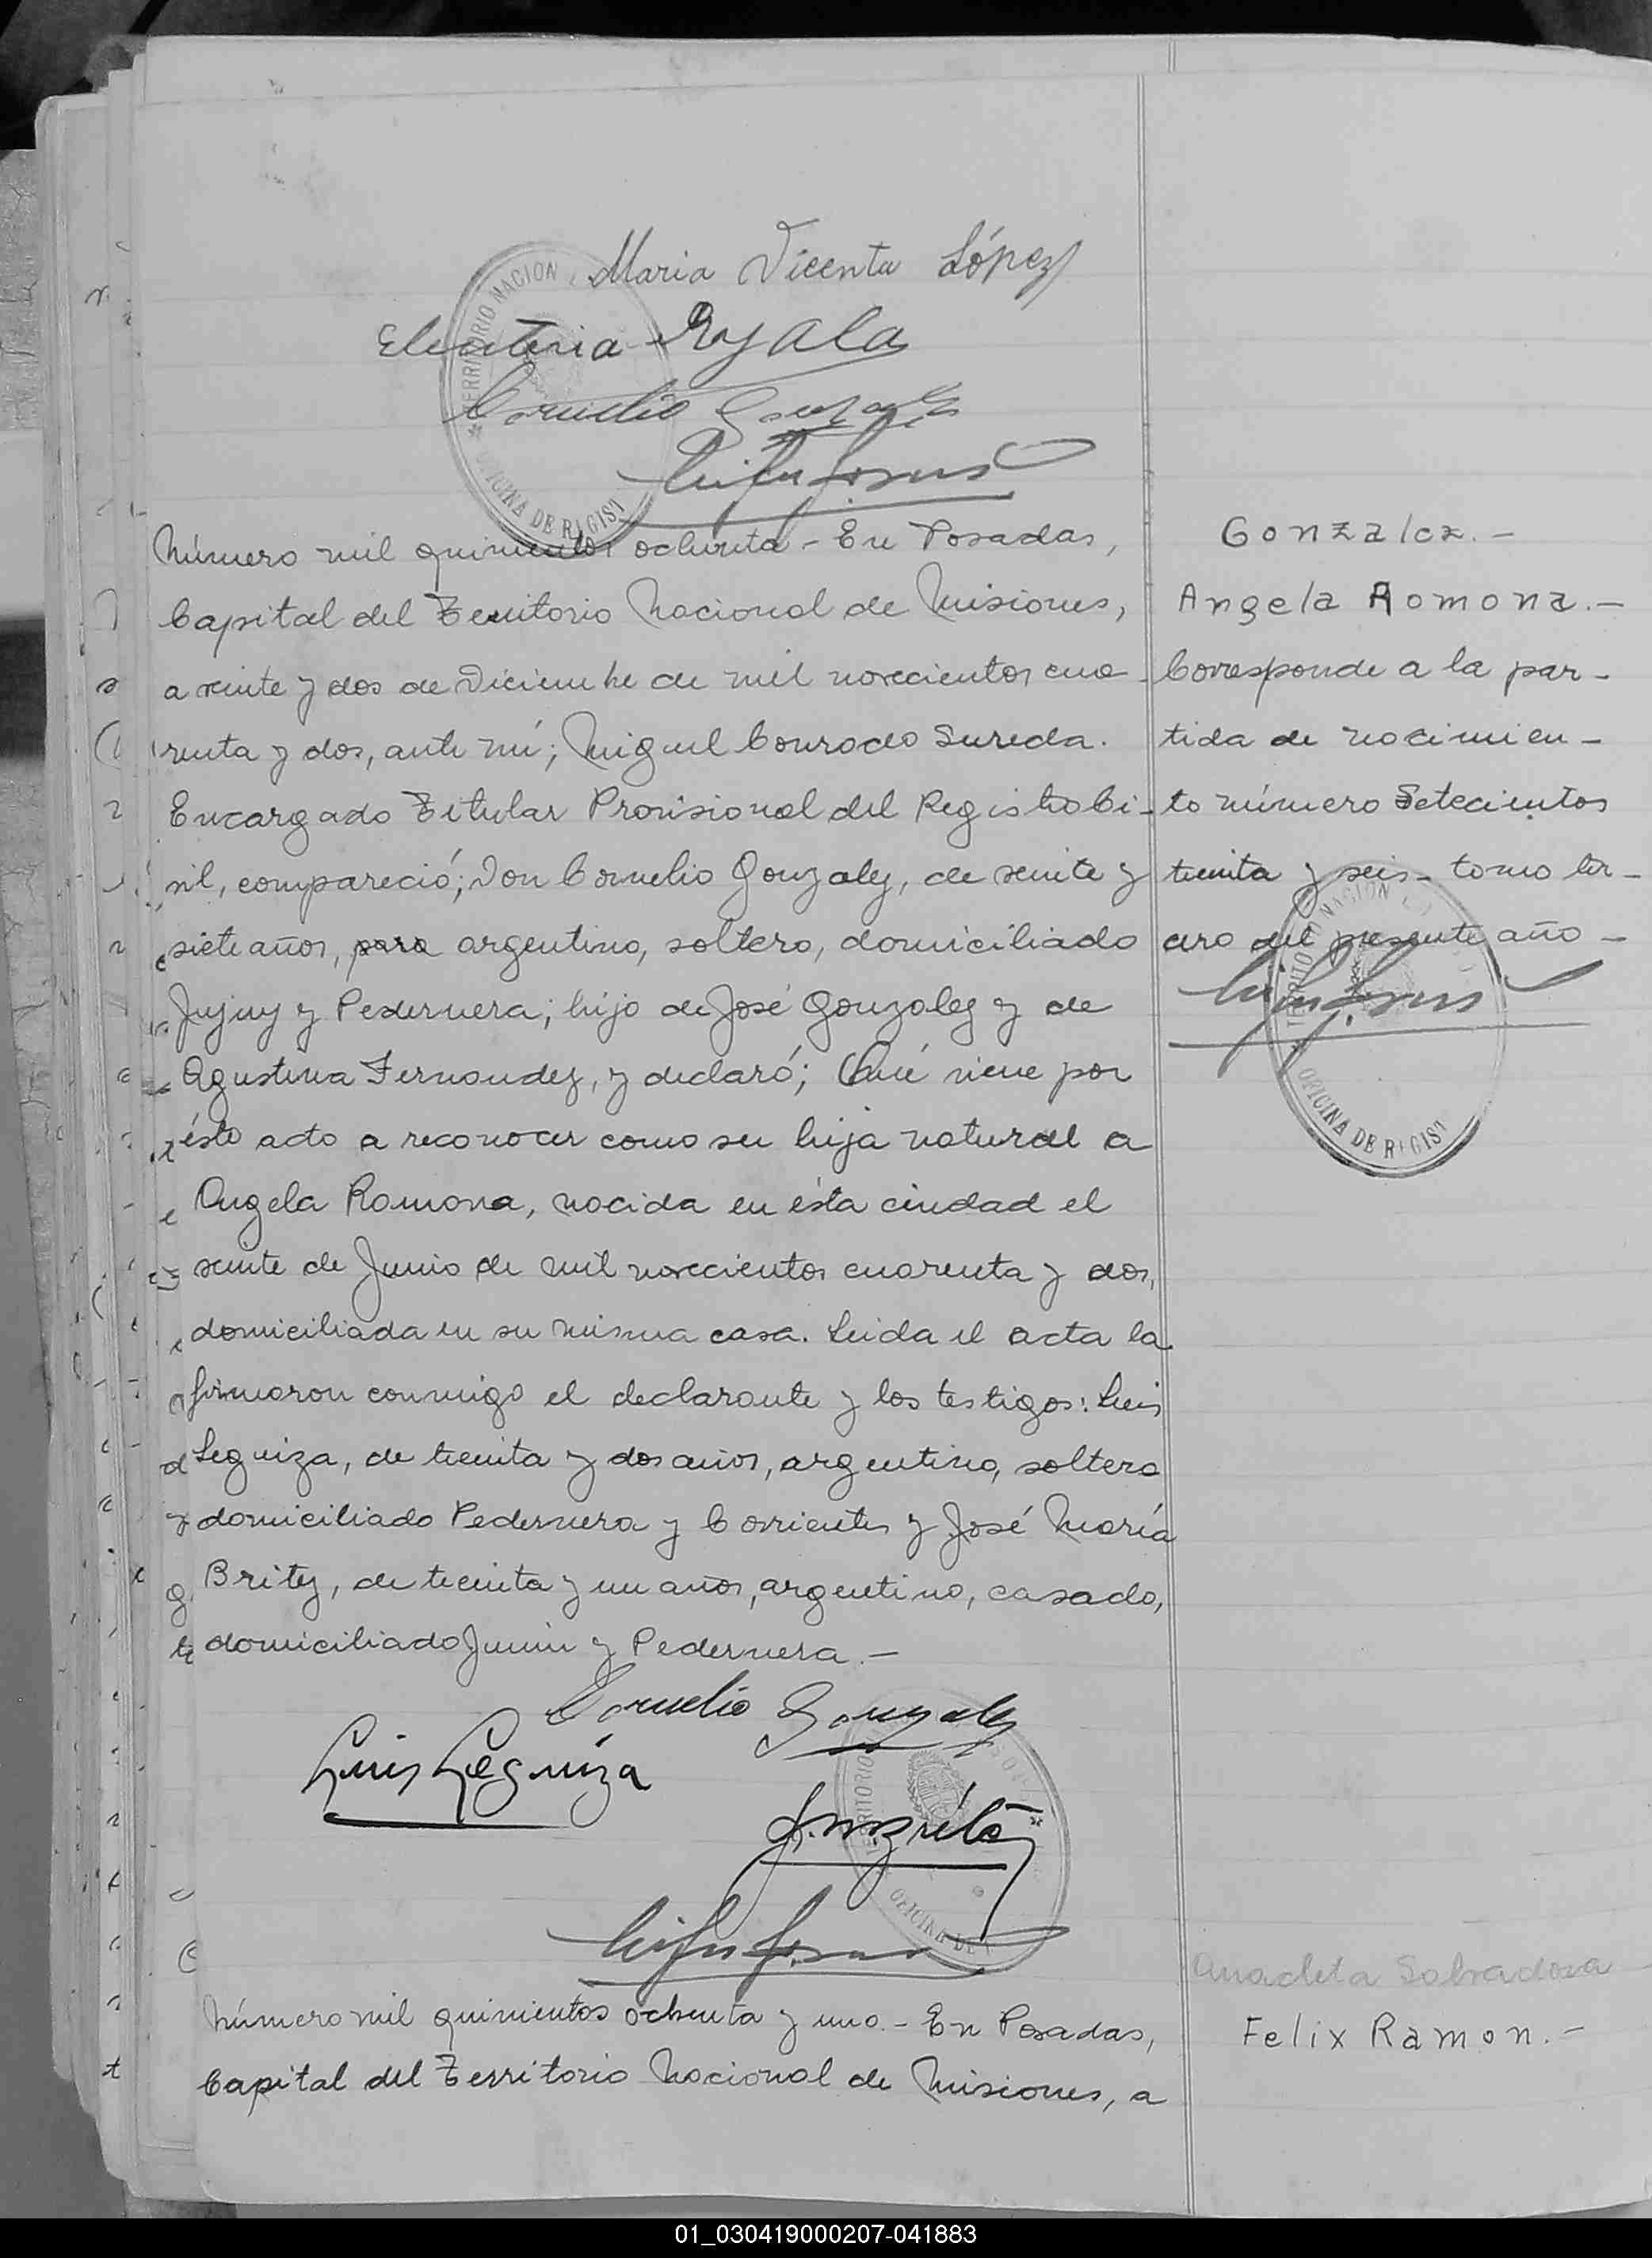 Maria Vicenta López
Eleuteria Ayala
Cornelio Gonzalez
TERRITORIO NACION
OFICINA DE REGIST
Número mil quinientos ochenta - En Posadas,
Capital del Territorio Nacional de Misiones,
a veinte y dos de Diciembre de mil novecientos cua-
renta y dos, ante mí; Miguel Conrado Sureda.
Encargado Titular Provisional del Registro Ci-
vil, compareció; Don Cornelio Gonzalez, de veinte y
siete años, para argentino, soltero, domiciliado
Jujuy y Pedernera; hijo de José Gonzalez y de
Agustina Fernandez, y declaró; Qué viene por
ésto acto a reconocer como su hija natural a
Angela Ramona, nacida en ésta ciudad el
veinte de Junio de mil novecientos cuarenta y dos,
domiciliada en su misma casa. Leida el acta la
firmaron conmigo el declarante y los testigos: Luis
Leguiza, de treinta y dos años, argentino, soltero
domiciliado Pedernera y Corrientes y José María
Britez, de treinta y un años, argentino, casado,
domiciliado Junin y Pedernera.-
Cornelio Gonzalez
Luis Leguiza
OFICINA DE
Número mil quinientos ochenta y uno.- En Posadas,
Capital del Territorio Nacional de Misiones, a
Gonzalez.-
Angela Romona.-
Corresponde a la par-
tida de nacimien-
to número Setecientos
treinta y seis- tomo ter-
cero del presente año-
OFICINA DE REGIST
Anacleta Sobradosa
Felix Ramon.-
01_030419000207-041883